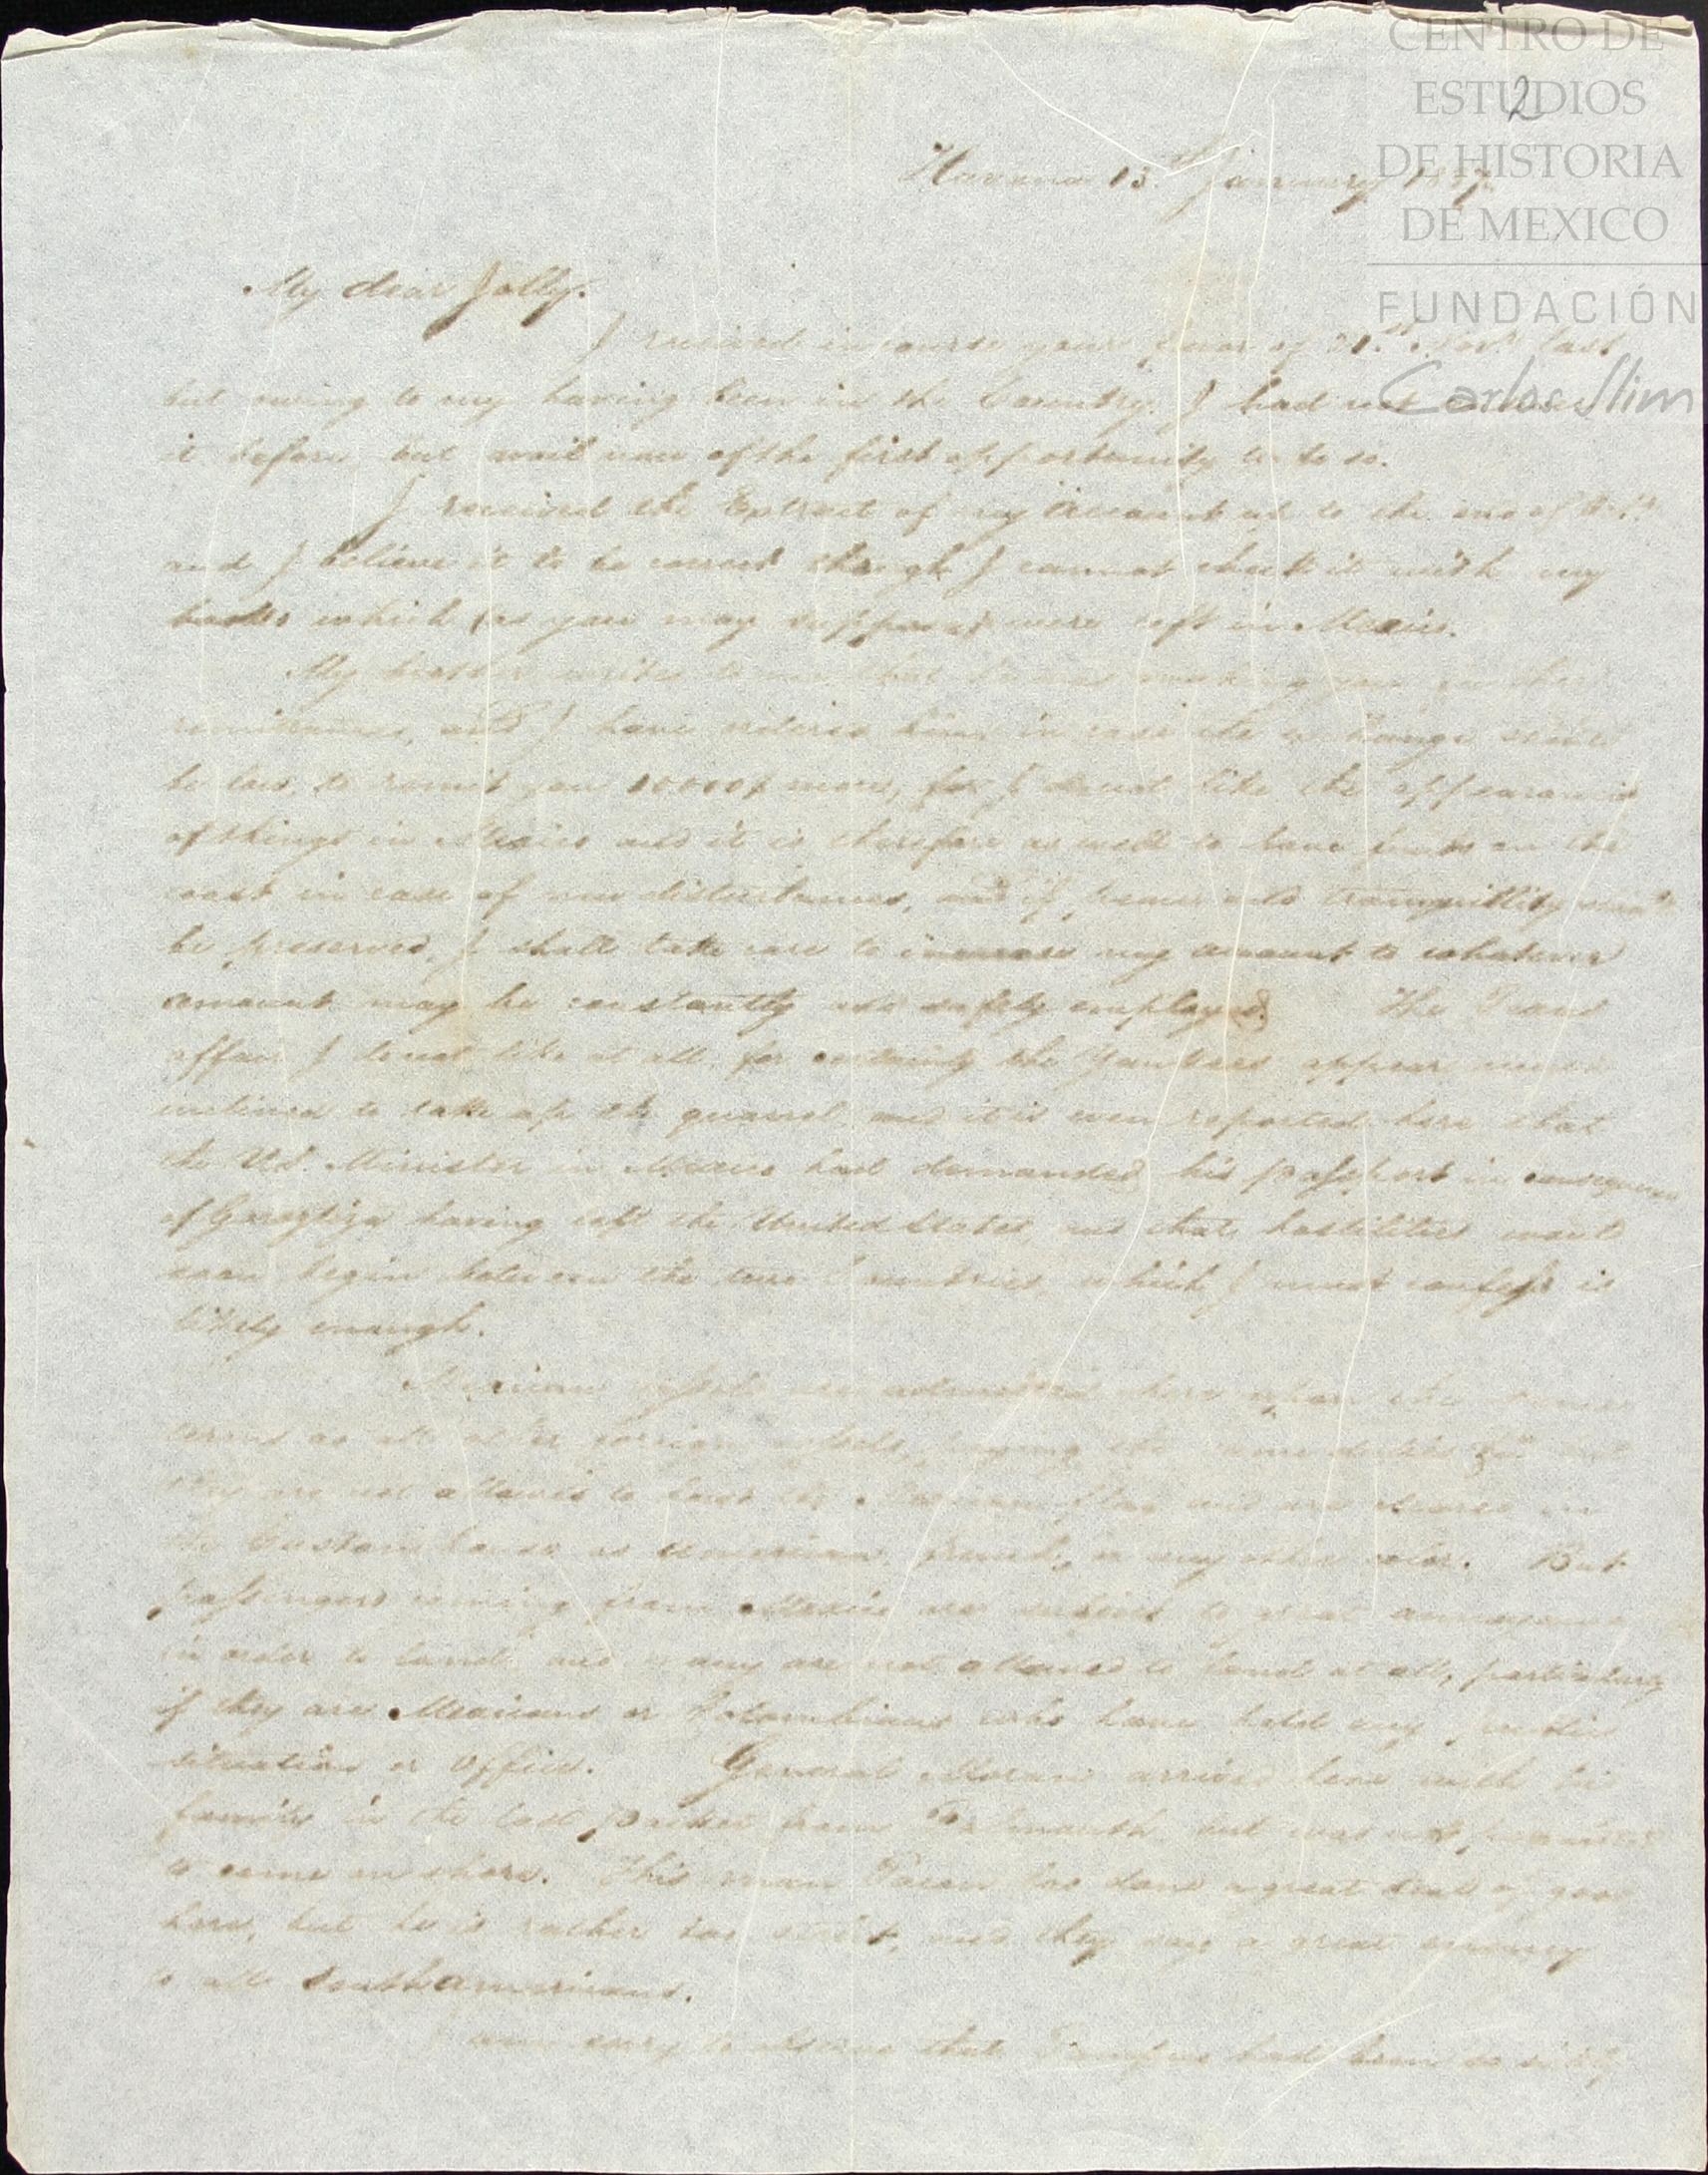 CENTRO DE
ESTUDIOS
DE HISTORIA
DE MEXICO
FUNDACIÓN
Carlos Slim
2
Havana 13th January 1837
My dear Jolly.
I received in course your favor of 21st Novr. last
but owing to my having been in the Country, I had not
it before but avail now of the first opportunity to do so.
I received the Extract of my account up to the end of
and I believe it to be correct though I cannot check it with my
books which (as you may suppose) were left in Mexico.
My brother writes to me that he was making you further
remittances, and I have ordered him in case the exchange should
be low, to remit you 10000$ more, for I do not like the appearance
of things in Mexico and it is therefore as well to have funds on the
coast in case of new disturbances, and if peace and tranquillity should
be preserved, I shall take care to increase my amount to whatever
amount may be constantly and safely employed. The Texas
affair I do not like at all, for certainly the Yankees appear much
inclined to take up the quarrel and it is even reported here that
the U.S. Minister in Mexico had demanded his passport in consequence
of Gorostiza having left the United States, and that hostilities would
soon begin between the two Countries, which I must confess is
likely enough.
Mexican vessels are admitted here upon the same
terms as all other foreign vessels, paying the same duties but
they are not allowed to hoist the Mexican flag and are cleared in
the Custom house as American, french, or any other color. But
passengers coming from Mexico are subject to great annoyance
in order to land, and many are not allowed to land at all, particularly
if they are Mexicans or Colombians who have held any public
situation or office. General Moran arrived here with his
family in the last packet from Falmouth but was not permitted
to come on shore. This man Tacon has done a great deal of good
here, but he is rather too strict, and they say a great enemy
to all Southamericans.
I am sorry to observe that Tampico had been so sickly